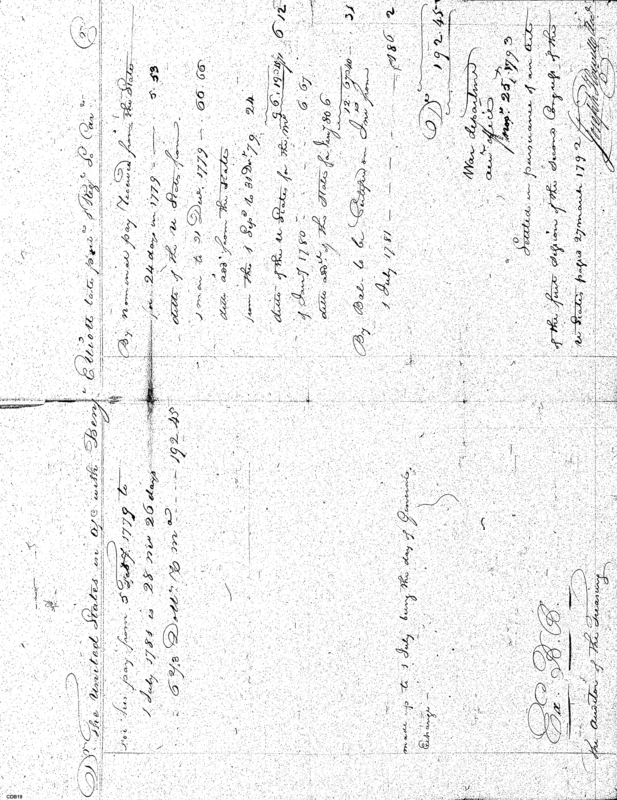 Dr. The United States in a/c with Benjn Elliott late priv. of Regt. Cr.
For his pay from 5 Feby 1779 to
1 July 1781 is 28 mos 26 days
6 2/3 Dolls. P mo. - - - 192.45
made up to 1 July being the day of General
Exchange -
Ex. D. B.
The Auditor of the Treasury
By nominal pay received from the State
for 24 days in 1779 - 5 33
ditto of the U States from
1 mar to 31 Decr. 1779 - 66 66
ditto add. from the State
from the 1 Sepr. to 31 Decr. 79 24
ditto of the U States for the mo.
of Jany 1780 - 6 67
ditto add. of the State for Jany 80 6
By Bal. to be Certified on Int. from
1 July 1781 - - - - 186 2
Drs. 192.45
War department
acct. office
Novr. 25, 1793
Settled in pursuance of an Act
of the first Session of the Second Congress of the
U States passed 27 march 1792
Joseph Howell
CDB19